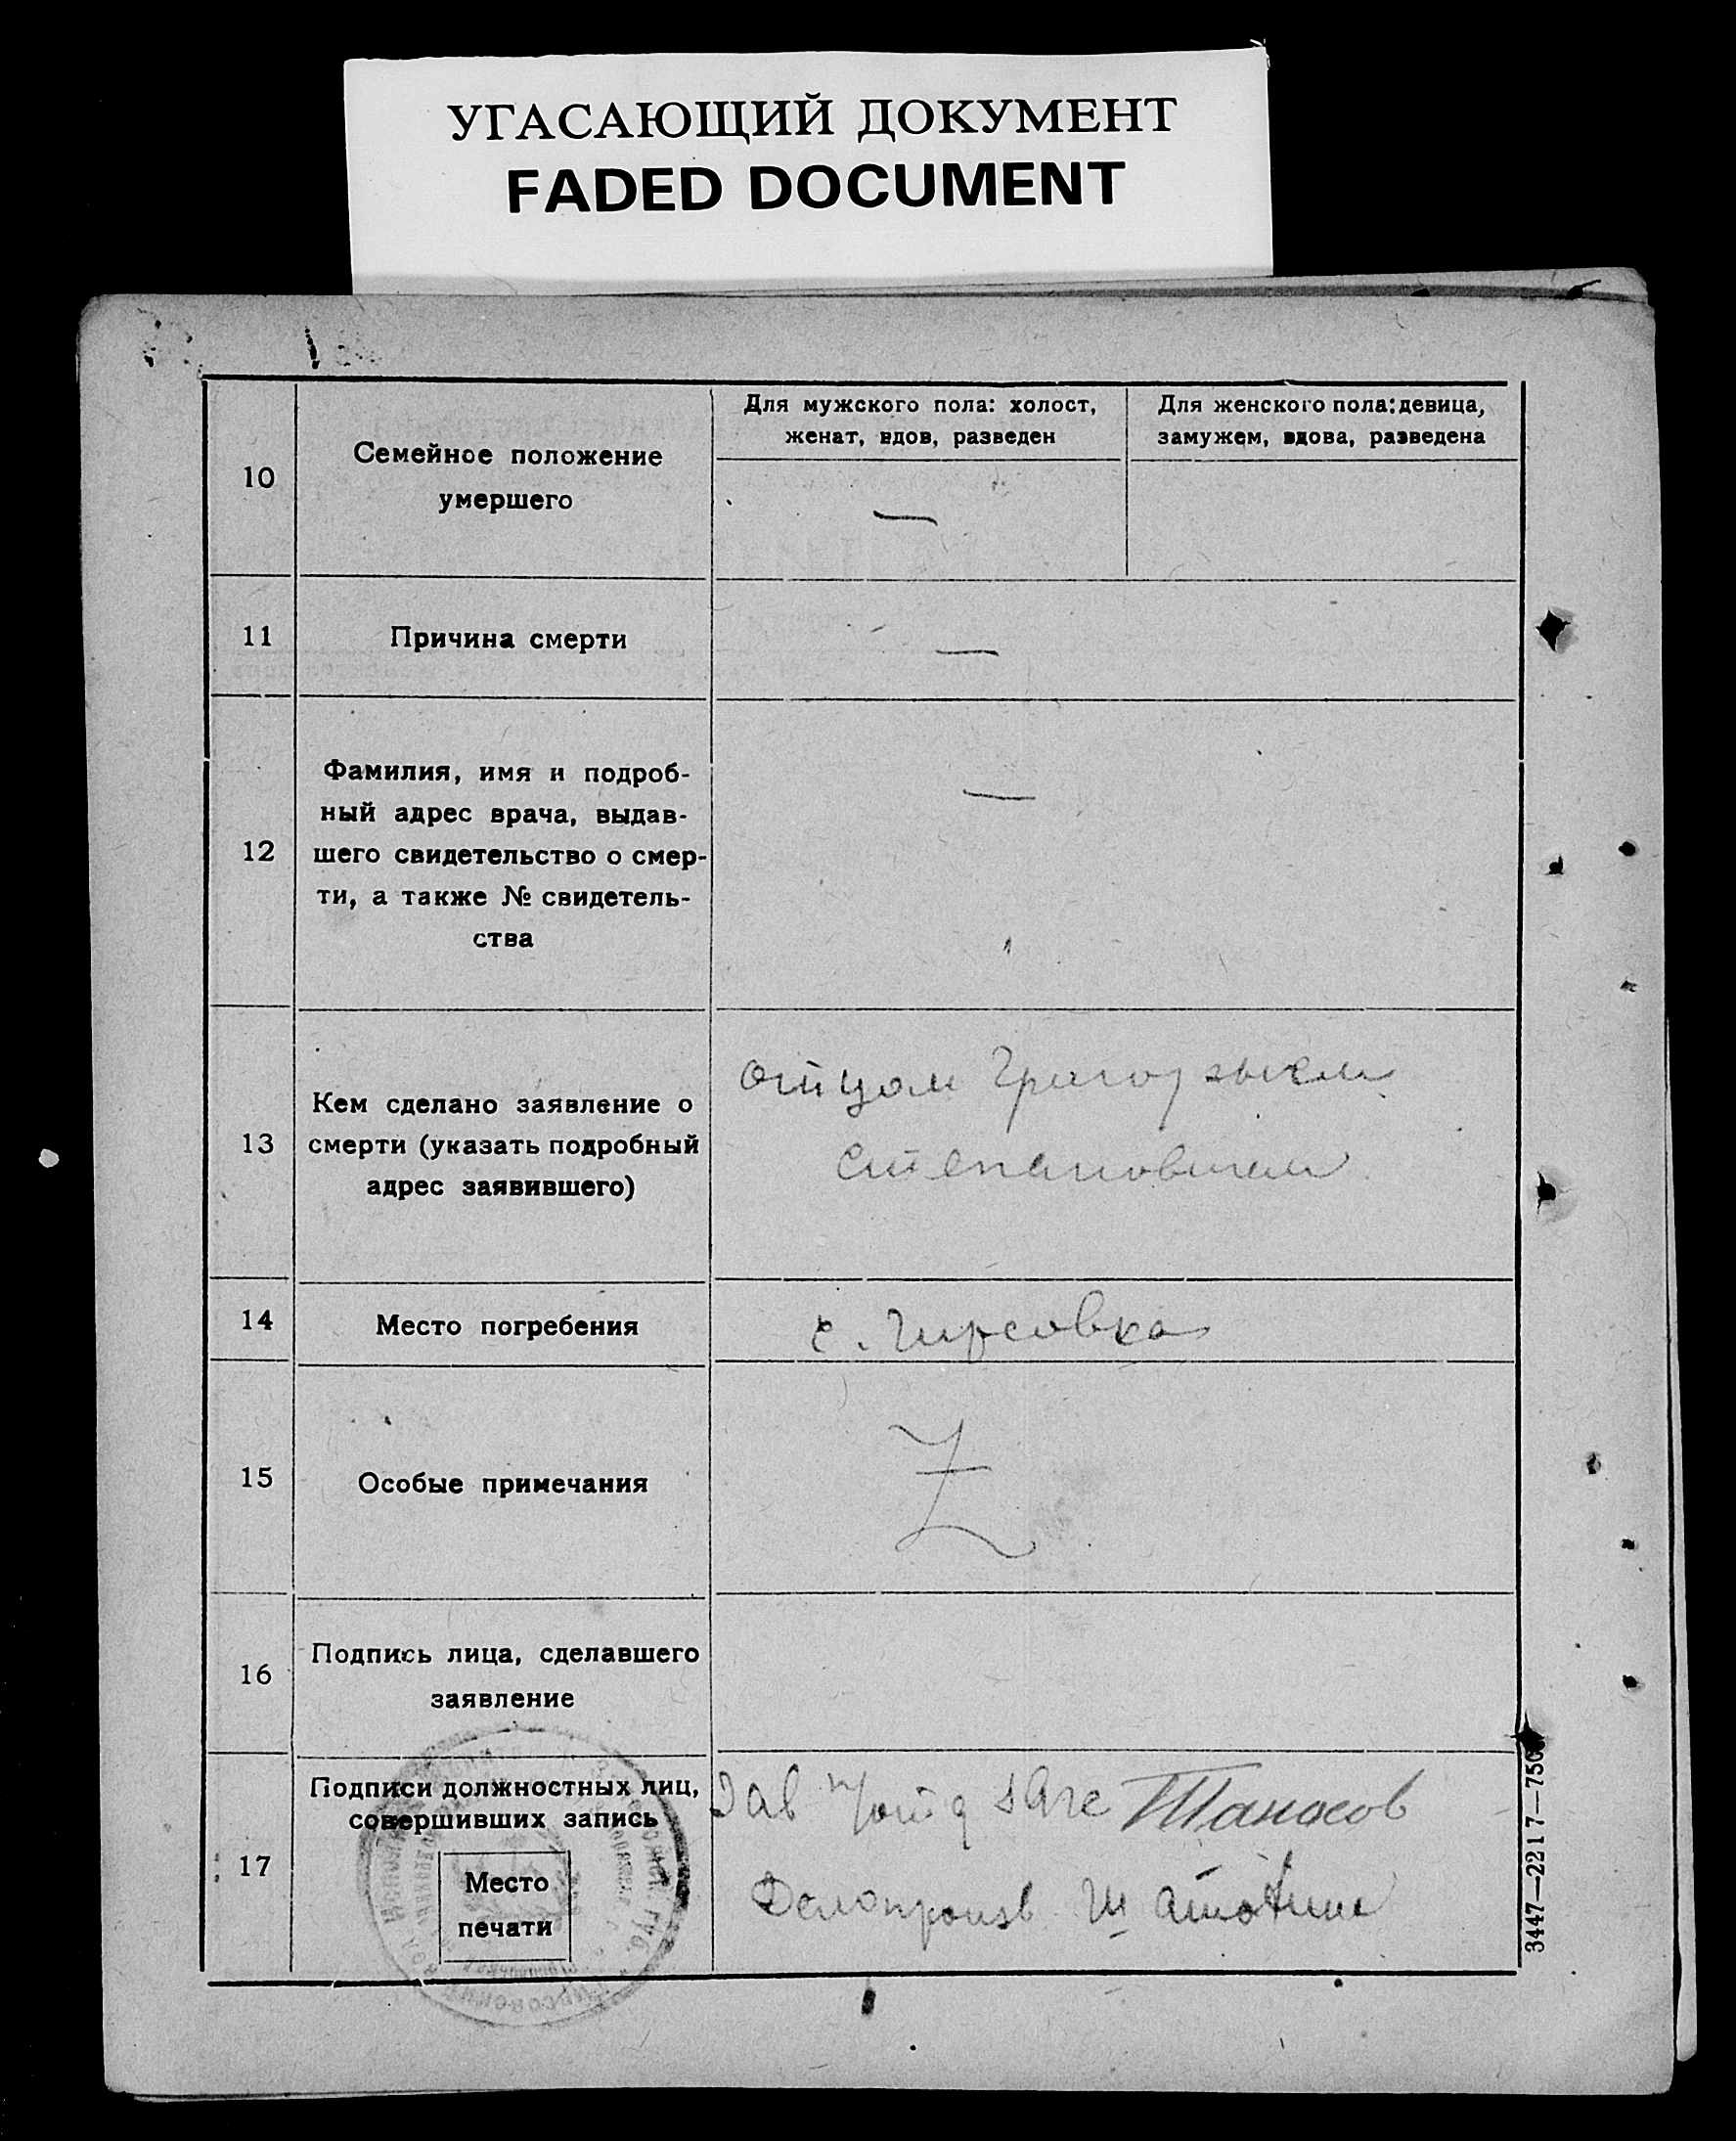 УГАСАЮЩИЙ ДОКУМЕНТ
FADED DOCUMENT
10
Семейное положение
умершего
Для мужского пола: холост,
женат, вдов, разведен
—
Для женского пола: девица,
замужем, вдова, разведена
11
Причина смерти
—
12
Фамилия, имя и подроб-
ный адрес врача, выдав-
шего свидетельство о смер-
ти, а также № свидетель-
ства
—
13
Кем сделано заявление о
смерти (указать подробный
адрес заявившего)
отцом
Степановичем
14
Место погребения
с. Гирсовка
15
Особые примечания
Z
16
Подпись лица, сделавшего
заявление
17
Подписи должностных лиц,
совершивших запись
Место
печати
Зав
Делопроизв
3447—2217—750